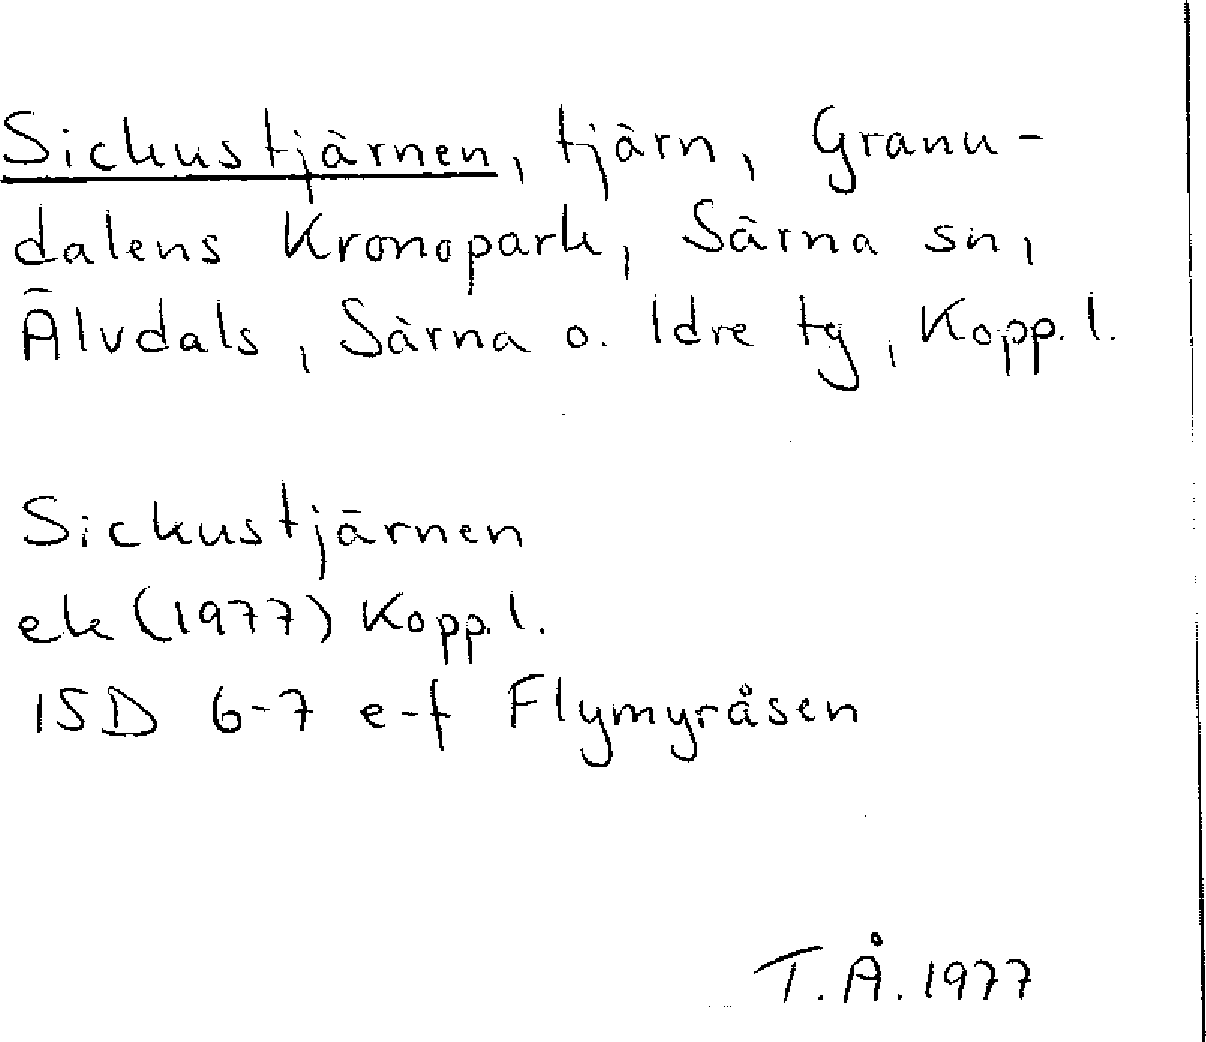 Sickustjärnen, tjärn, Granu-
dalens Kronopark, Särna sn,
Älvdals, Särna o. Idre tg, Kopp. l.
Sickustjärnen
ek (1977) Kopp. l.
15D 6-7 e-f Flymyråsen
T. Å. 1977